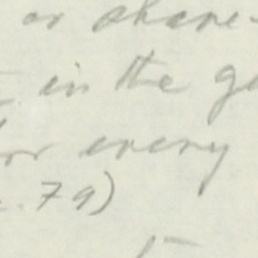 or share-
in the g
for every
. 79)